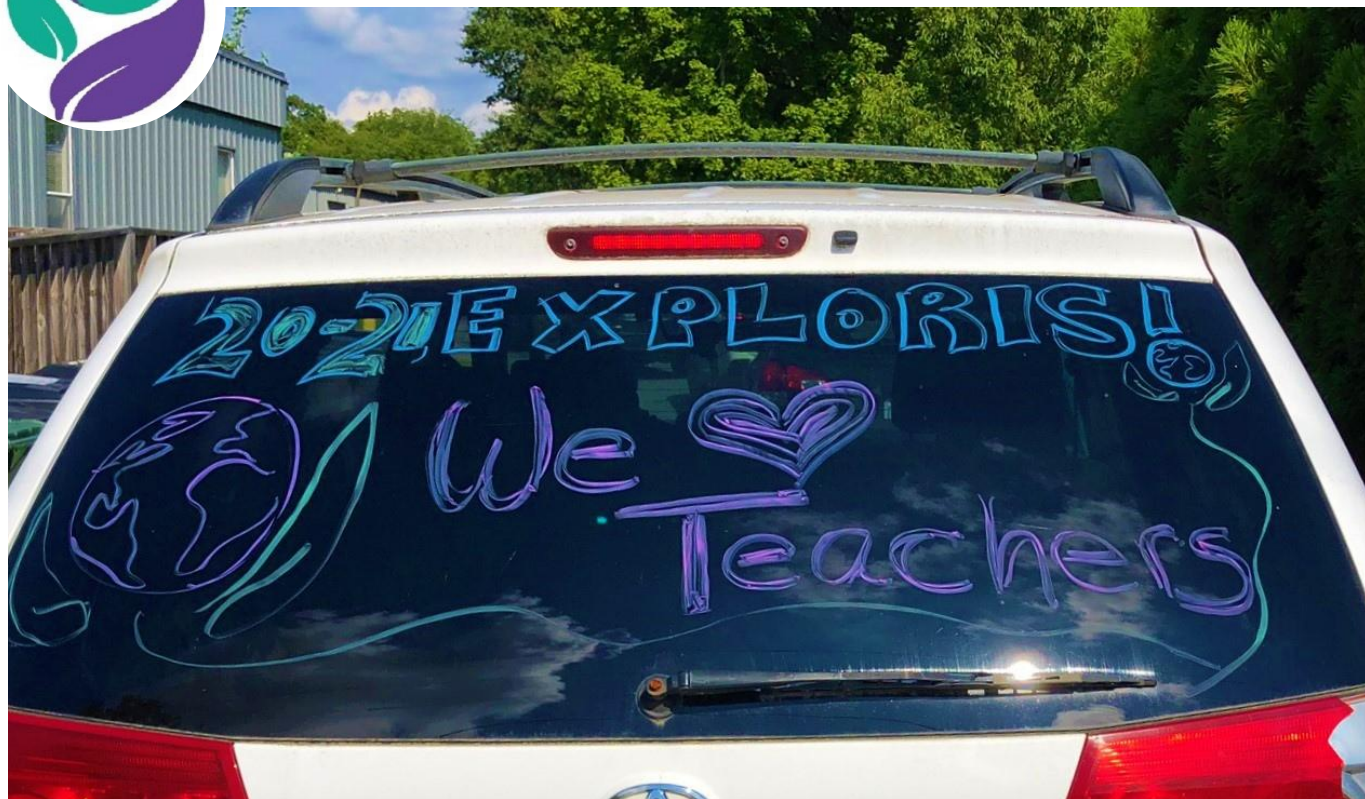 20-21 EXPLORIS!
We ♥
Teachers